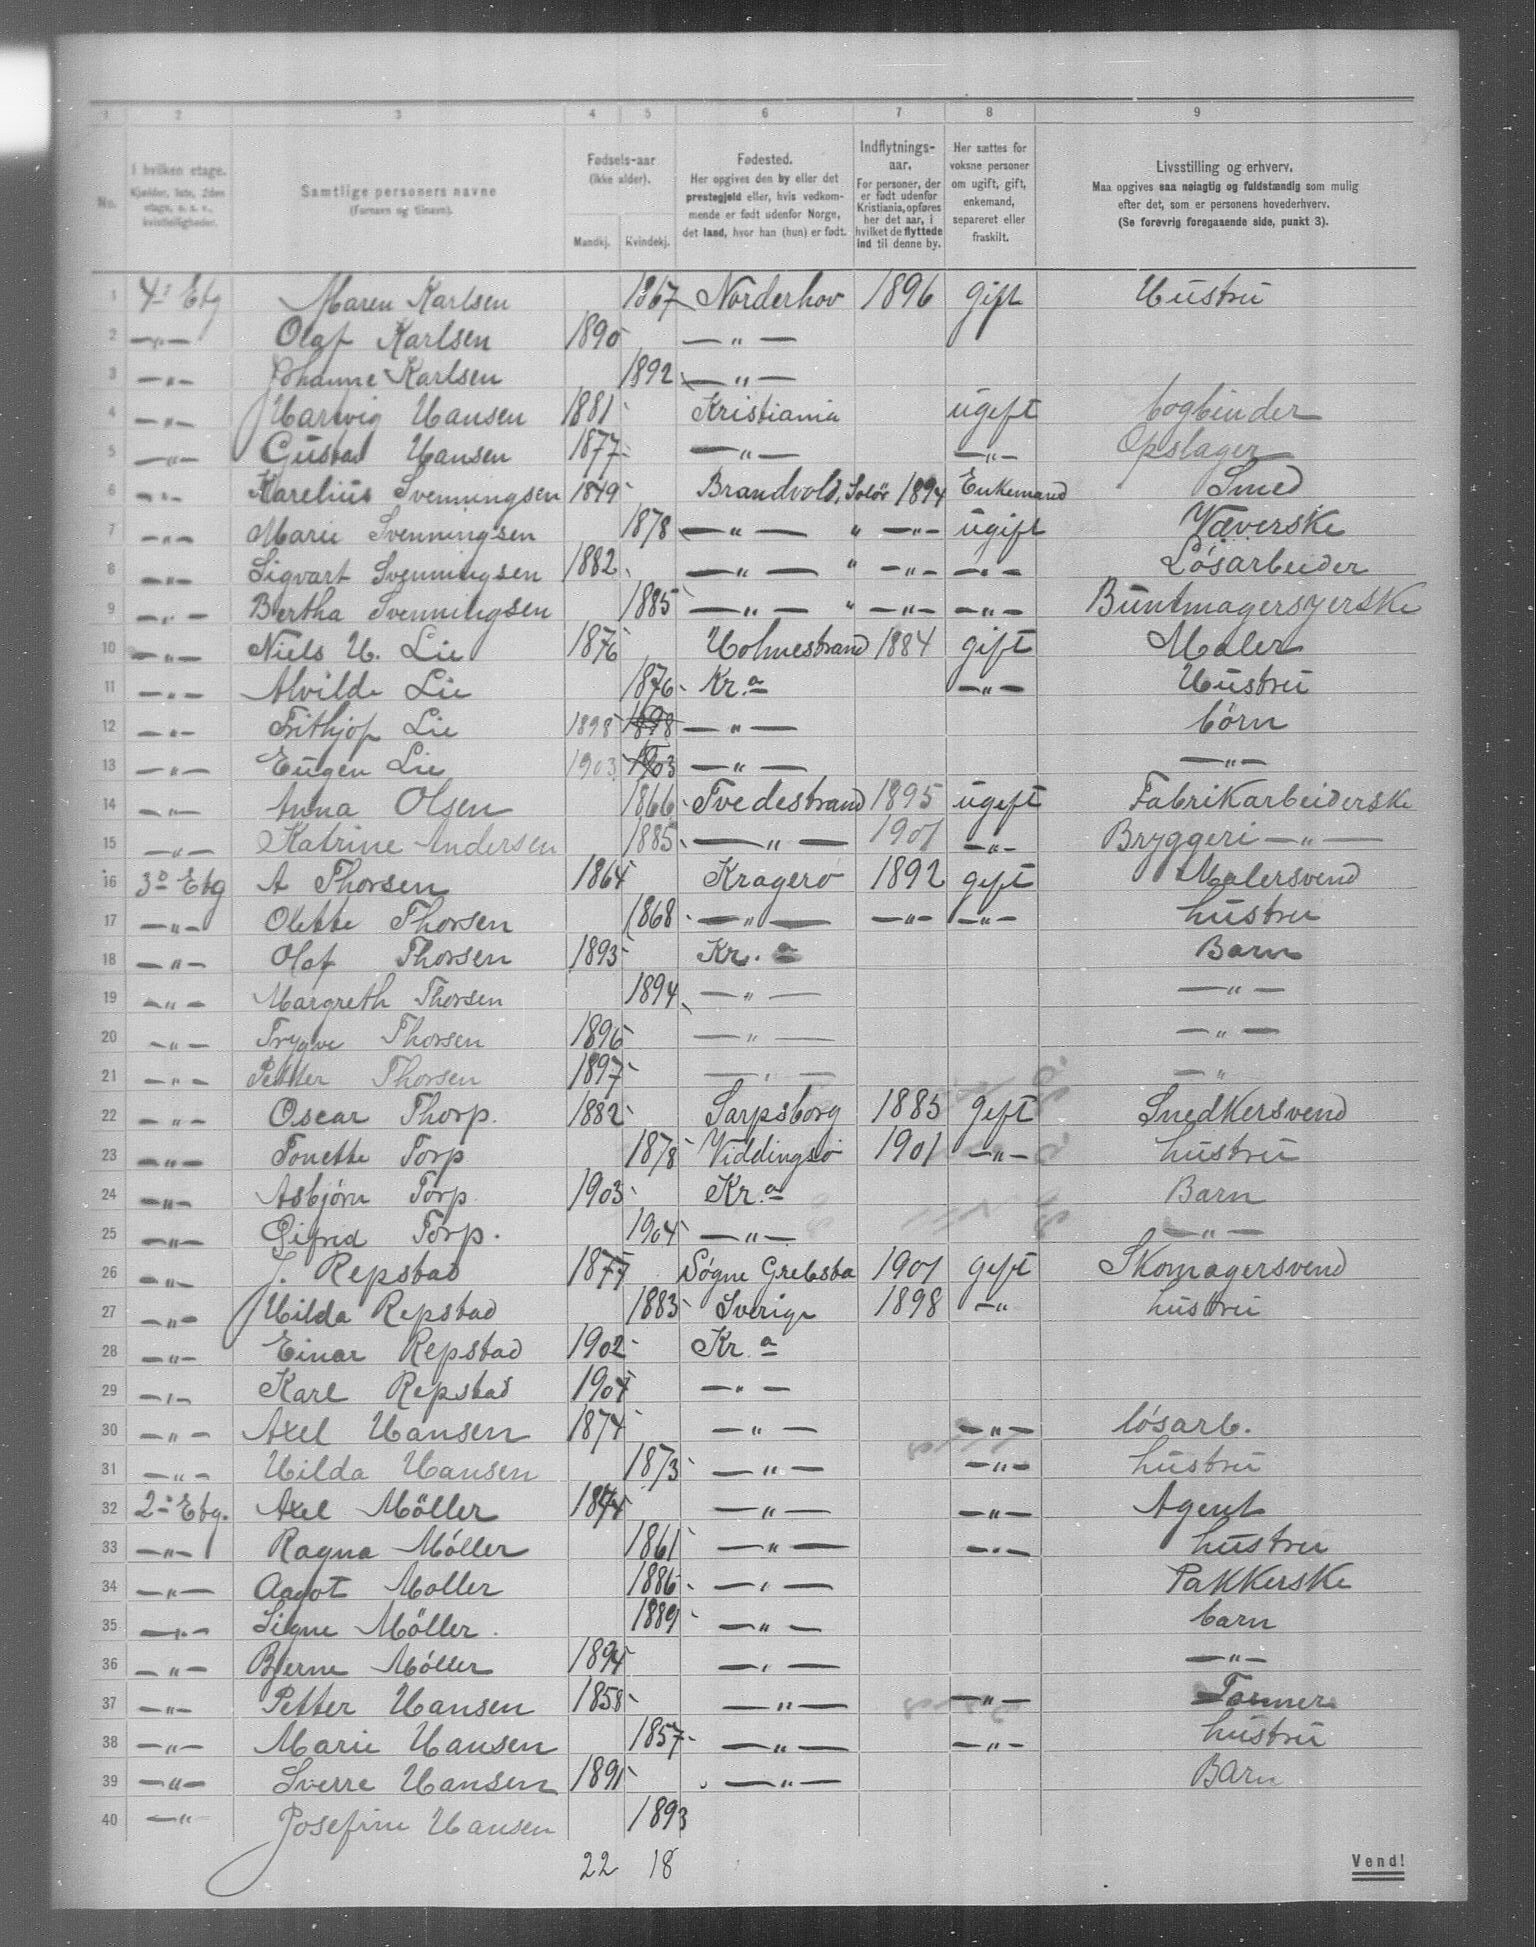 1 2 3 4 5 6 7 8 9
No.
I hvilken etage.
Kjælder, 1ste, 2den etage, o. s. v., kvistleiligheder.
Samtlige personers navne
(Fornavn og tilnavn).
Fødsels-aar
(ikke alder).
Mandkj. Kvindekj.
Fødested.
Her opgives den by eller det
prestegjeld eller, hvis vedkom-
mende er født udenfor Norge,
det land, hvor han (hun) er født.
Indflytnings-
aar.
For personer, der
er født udenfor
Kristiania, opføres
her det aar, i
hvilket de flyttede
ind til denne by.
Her sættes for
voksne personer
om ugift, gift,
enkemand,
separeret eller
fraskilt.
Livsstilling og erhverv.
Maa opgives saa nøiagtig og fuldstændig som mulig
efter det, som er personens hovederhverv.
(Se forøvrig foregaaende side, punkt 3).
1 4' Etg Maren Karlsen 1867 Norderhov 1896 gift Hustru
2 —"— Olaf Karlsen 1890 —"—
3 —"— Johanne Karlsen 1892 —"—
4 —"— Hartvig Hansen 1881 Kristiania ugift bogbinder
5 —"— Gustav Hansen 1877 —"— —"— Opslager
6 —"— Karelius Svenningsen 1849 Brandvold, Solør 1894 Enkemand Smed
7 —"— Marie Svenningsen 1878 —"— " —"— ugift Væverske
8 —"— Sigvart Svenningsen 1882 —"— " —"— —"— Løsarbeider
9 —"— Bertha Svenningsen 1885 —"— " —"— —"— Buntmagersyerske
10 —"— Niels H. Lie 1876 Holmestrand 1884 gift Maler
11 —"— Alvilde Lie 1876 Kr.a —"— Hustru
12 —"— Frithjof Lie 1898 1898 —"— børn
13 —"— Eugen Lie 1903 1903 —"— —"—
14 —"— Anna Olsen 1866 Tvedestrand 1895 ugift Fabrikarbeiderske
15 —"— Katrine Andersen 1885 —"— 1901 —"— Bryggeri —"—
16 3' Etg A Thorsen 1864 Kragerø 1892 gift Malersvend
17 —"— Olette Thorsen 1868 —"— —"— —"— hustru
18 —"— Olaf Thorsen 1893 Kr.a Barn
19 —"— Margreth Thorsen 1894 —"— —"—
20 —"— Trygve Thorsen 1896 —"— —"—
21 —"— Petter Thorsen 1897 —"— —"
22 —"— Oscar Thorp. 1882 Sarpsborg 1885 gift Snedkersvend
23 —"— Tonette Torp 1878 Viddingsø 1901 —"— hustru
24 —"— Asbjørn Torp 1903 Kr.a Barn
25 —"— Torp. 1904 —"— —"—
26 —"— J. Repstad 1877 Søgne 1901 gift Skomagersvend
27 —"— Hilda Repstad 1883 Sverige 1898 —" hustru
28 —"— Einar Repstad 1902 Kr.a
29 —"— Karl Repstad 1904 —"—
30 —"— Axel Hansen 1874 —"— —"— løsarb.
31 —"— Hilda Hansen 1873 —"— —"— hustru
32 2' Etg. Axel Möller —"— —"— Agent
33 —"— Ragna Möller 1861 —"— —"— hustru
34 —"— Aagot Moller 1886 —"— Pakkerske
35 —"— Signe Möller. 1889 —"— barn
36 —"— Bjerne Möller 1894 —"— —"—
37 —"— Petter Hansen 1858 —"— —"— Former
38 —"— Marie Hansen 1857 —"— —"— hustru
39 —"— Sverre Hansen 1891 —"— Barn
40 —" Josefine Hansen 1893
22 18
Vend!